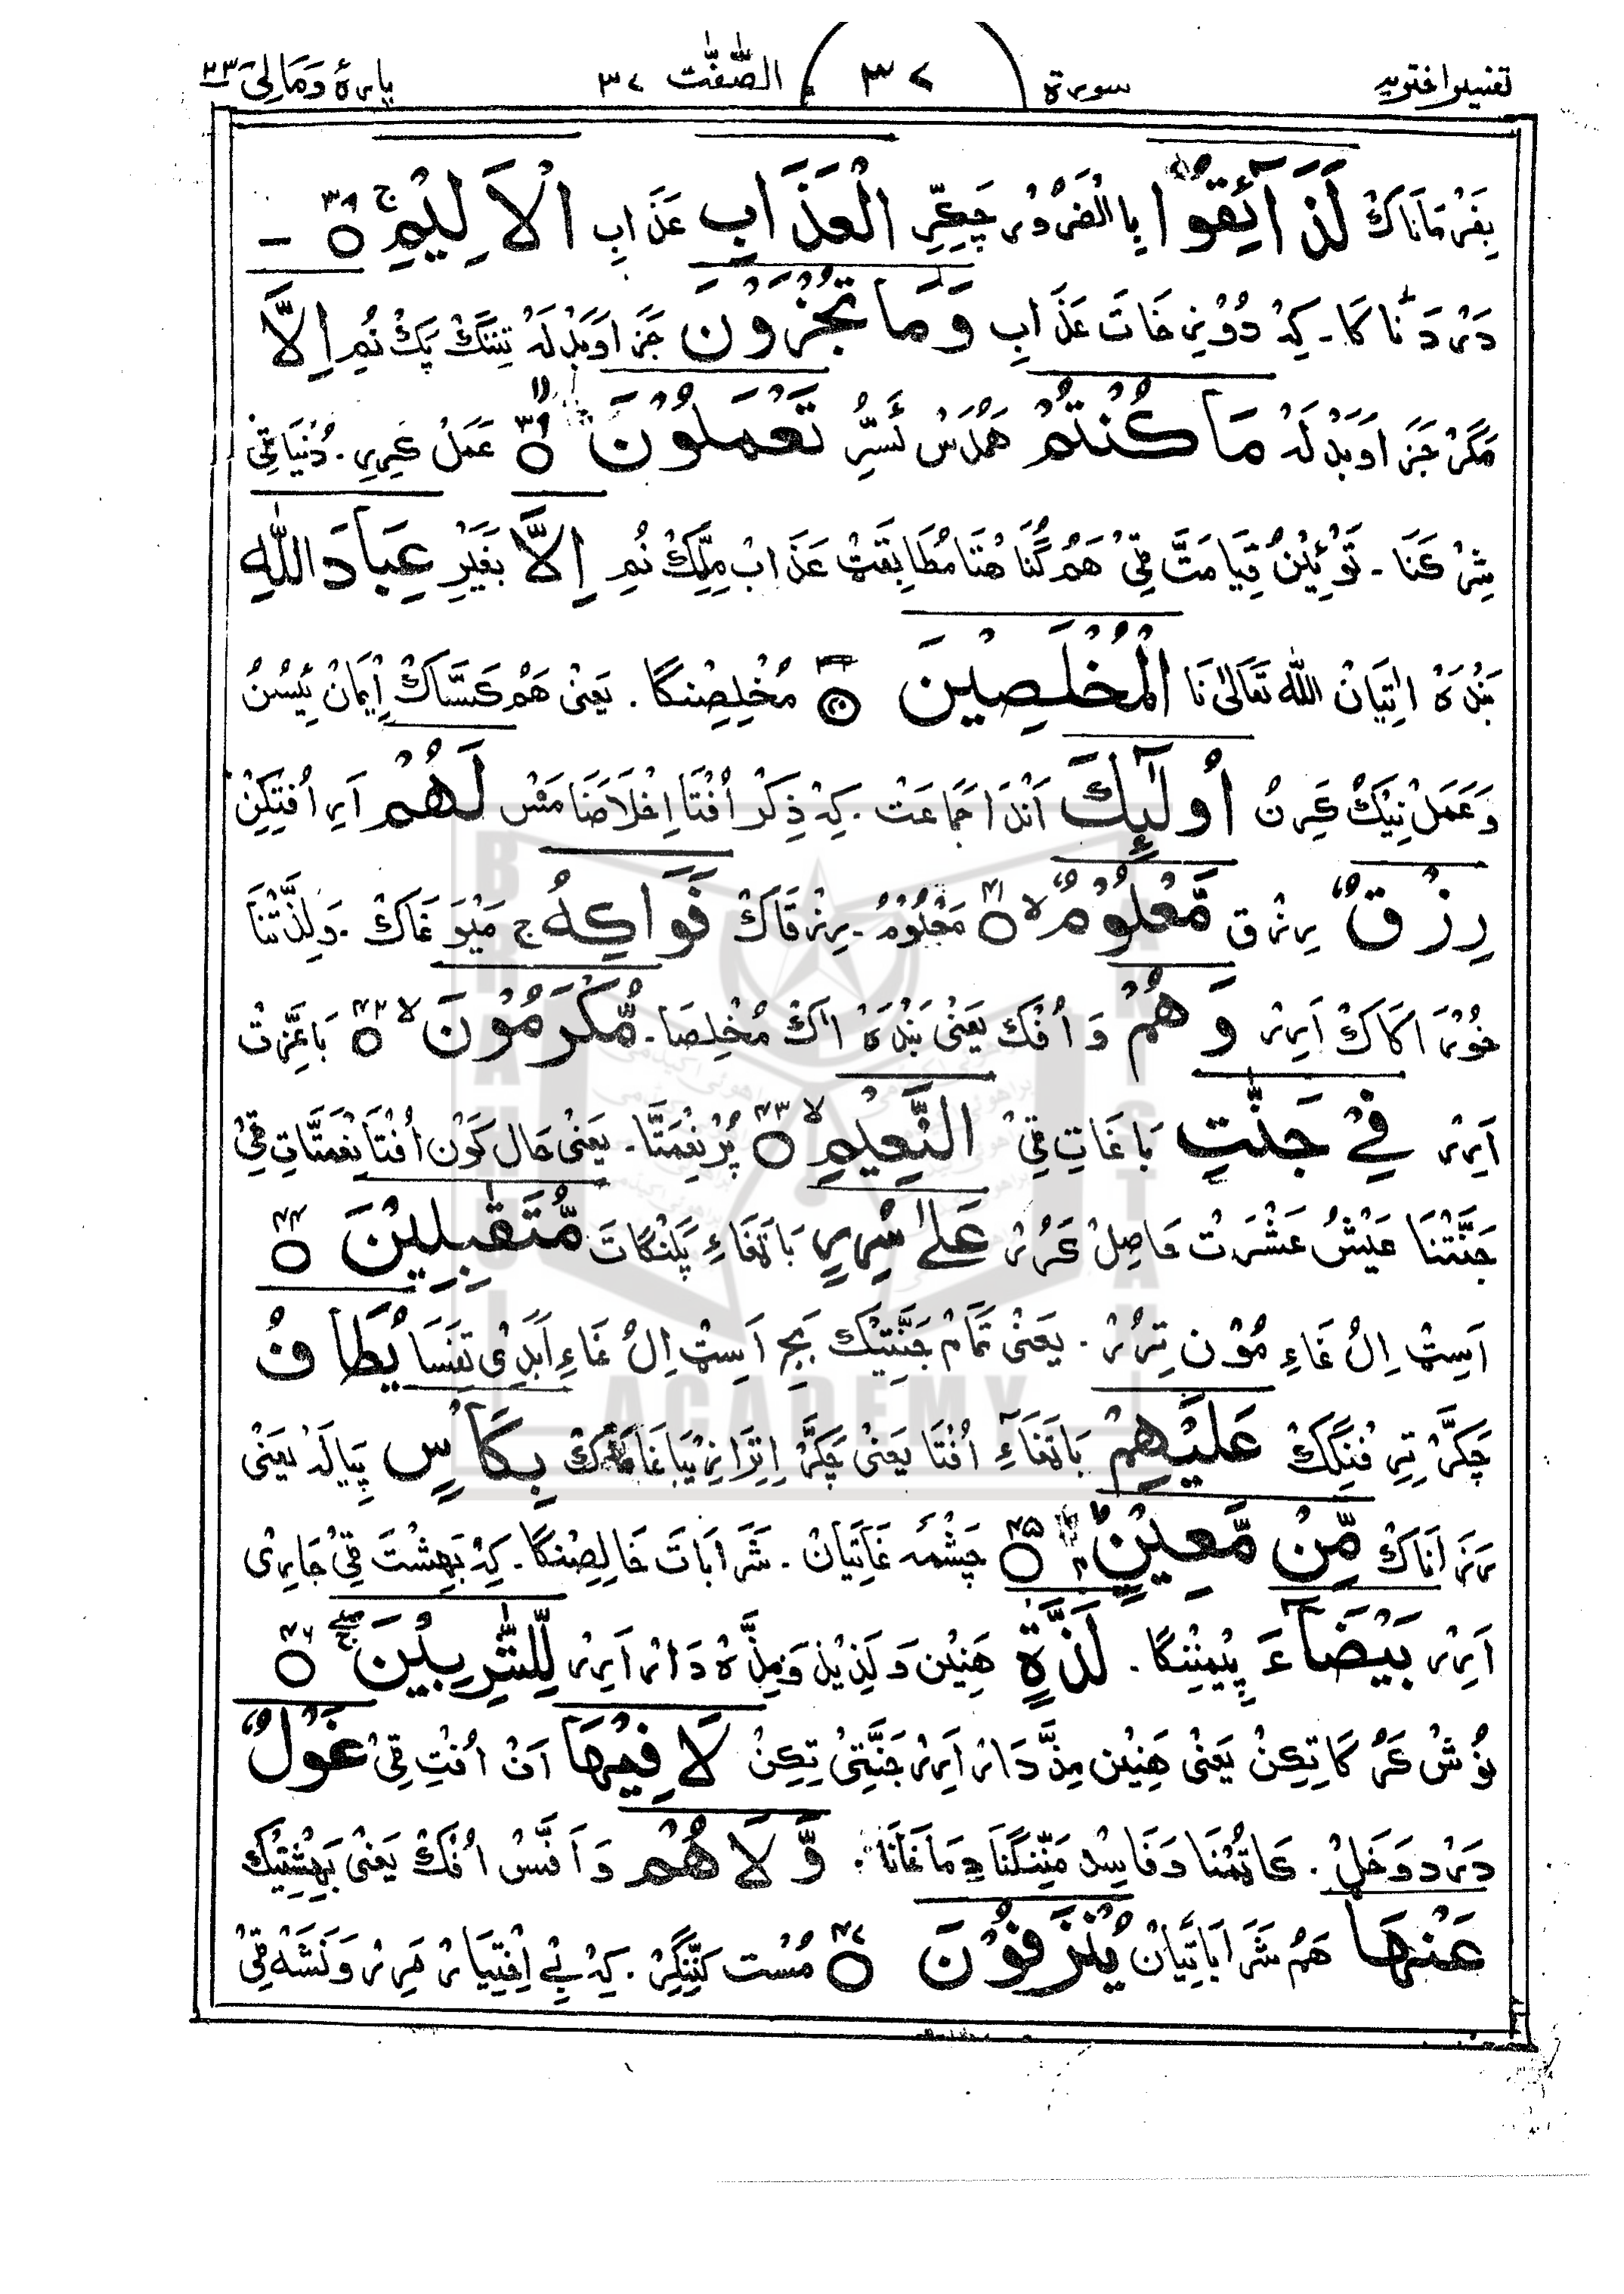 تفسیر اختریہ سورۃ ٣٧ الصّٰفّٰت ٣٧ پارۂ وَمَالِیَ ٢٣
بِفَرْمَانَاکْ لَذَآئِقُوا بِالضَّرُوْر چَکِّرِ الْعَذَابِ عَذَابِ الْاَلِیْمِ ۚ ٣٨
دَرْدَنَاکَا۔ کِہْ دُوْزِخَاتَ عَذَابِ وَمَا تُجْزَوْنَ جَزَا وَبَدْلَہْ تِنِنگَکْ پَکْ نُمِ اِلَّا
مَگَرْ جَزَا وَبَدْلَہْ مَا کُنْتُمْ ھَمُدَسْ ئَسُرِّ تَعْمَلُوْنَ ٣٩ عَمَلْ کَرِر۔ دُنْیَا قِیْ
شِرْکَنَا۔ تَوْ ئِیْنُ قِیَامَتَّ قِیْ ھَمُ گُنَاھنَا مُطَابِقَتْ عَذَابْ مِلِّکْ نُمِ اِلَّا بَغَیْرِ عِبَادَ اللّٰهِ
بَنْدَہْ اتِیَانْ اللّٰه تَعَالٰی نَا الْمُخْلَصِیْنَ ٤٠ مُخْلِصِنگَا۔ یَعْنِیْ ھَمُ کَسَّاکْ اِیْمَانْ ئِیْسُنُ
وَعَمَلْ نِیْکْ کَرِنُ اُولٰٓئِكَ اَنْدَا جَمَاعَتْ۔ کِہْ ذِکْر اُفْتَا اِخْلَاصَنَا مَسْ لَھُمْ اَرِ اُفْتِکِنْ
رِزْقٌ رِزْق مَّعْلُوْمٌ ۙ ٤١ مَعْلُوْمُ۔ رِزْقَاکْ فَوَاکِهُ ۚ مَیْوَغَاکْ۔ وَلِذَّتْنَا
خُوْرَاکَاکْ اَرِرْ وَھُمْ وَاُفْک یَعْنِیْ بَنْدَہْ اکْ مُخْلِصَا۔ مُّکْرَمُوْنَ ۙ ٤٢ بَاعِزَّتْ
اَرِرْ فِیْ جَنّٰتِ بَاغَاتِ قِیْ النَّعِیْمِ ۙ ٤٣ پُرْنِعْمَتَّا۔ یَعْنِیْ حَال کَوْن اُفْتَا نِعْمَتَّاتِ قِیْ
جَنَّتْنَا عَیْشُ عَشْرَتْ حَاصِلْ کَرُرْ عَلٰی سُرُرٍ بَاتِغَاءِ پَلَنْگَاتَ مُّتَقٰبِلِیْنَ ٤٤
اَسِٹْ اِلُ غَاءِ مُوْن تِرُرْ۔ یَعْنِیْ تَمَامْ جَنَّتِیْکْ بَجِ اَسِٹْ اِلُ غَاءِ اَبَدِیْ تِفَسَا یُطَافُ
چَکَّرْ تِرِفِنگِکْ عَلَیْھِمْ بَاتِغَاءِ اُفْتَا یَعْنِیْ چَکَّرْ بِکَاْسٍ پِیَالَہْ یَعْنِیْ
مِّنْ مَّعِیْنٍ ٤٥ چَشْمَہ غَاتِیَانْ۔ شَرَابَاتَ خَالِصِنگَا۔ کِہْ بَہِشْتَ قِیْ جَارِیْ
اَرِرْ بَیْضَآءَ پِیْہُنِنگَا۔ لَذَّةٍ ھَنِیْن وَلَذِیْذ وَمِزَّہْ دَارْ اَرِرْ لِّلشّٰرِبِیْنَ ۚ ٤٦
نُوْشُ کَرُکَاتِکِنْ یَعْنِیْ ھَنِیْن مِزَّدَارْ اَرِرْ جَنَّتِیْ تِکِنْ لَا فِیْھَا اَفْ اُفْتِ قِیْ غَوْلٌ
دَرْدوَخَلْ۔ کَاٹُمْنَا وَفَاسِدْ مَنِّنگَنَا دِمَاغَانَا۔ وَّلَا ھُمْ وَاَفَّسْ اُفْکْ یَعْنِیْ بَہِشْتِیْکْ
عَنْھَا ھَمُ شَرَابَاتِیَانْ یُنْزَفُوْنَ ٤٧ مُسْت کَنِّنگِرْ۔ کِہْ بِے اِخْتِیَارْ مَرِرْ وَنَشَہْ قِیْ
BRAHUI ACADEMY